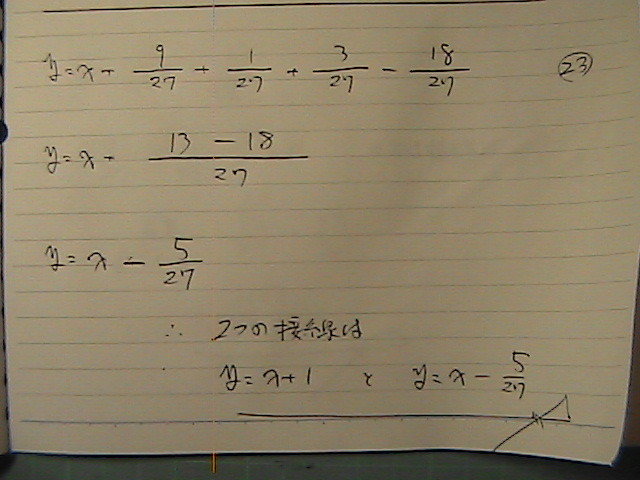 y = x + 9/27 + 1/27 + 3/27 - 18/27 ㉓
y = x + (13 - 18)/27
y = x - 5/27
∴ 2つの接線は
y = x + 1 と y = x - 5/27